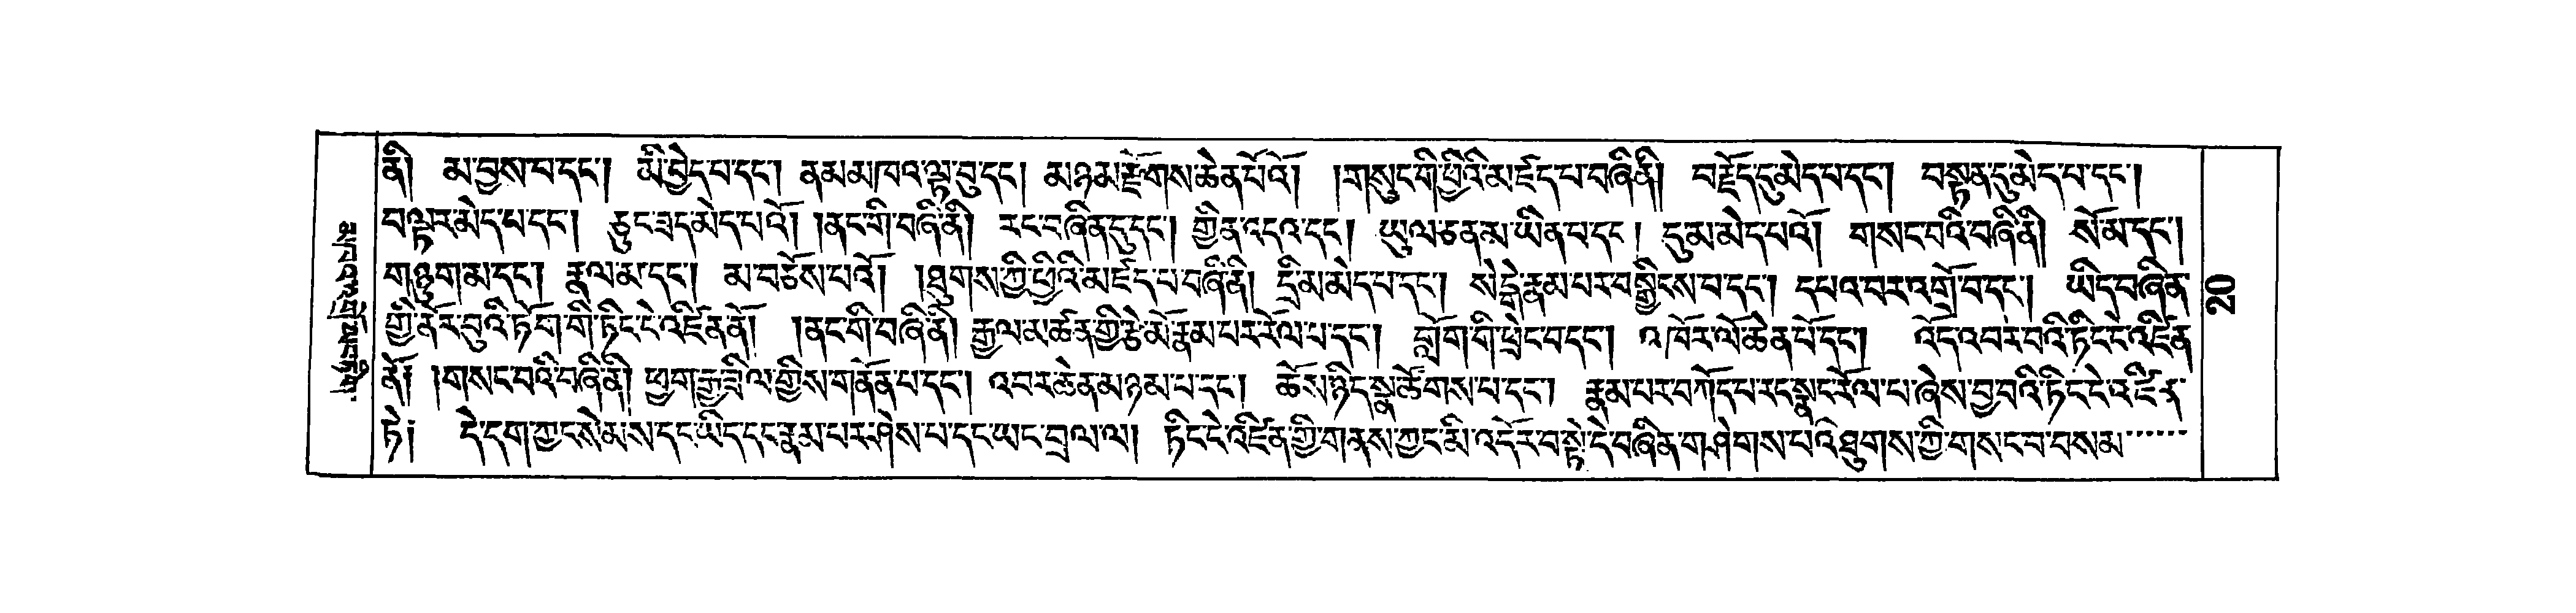 ནི། མ་བྱས་པ་དང་། མི་བྱེད་པ་དང་། ནམ་མཁའ་ལྟ་བུ་དང་། མཉམ་རྫོགས་ཆེན་པོའོ། །གསུང་གི་ཕྱིའི་མཛད་པ་བཞི་ནི། བརྗོད་དུ་མེད་པ་དང་། བསྟན་དུ་མེད་པ་དང་།
བལྟར་མེད་པ་དང་། ཅུང་ཟད་མེད་པའོ། །ནང་གི་བཞི་ནི། རང་བཞིན་དུ་དང་། གྱིན་འདའ་དང་། ཡུལ་ཅན་མ་ཡིན་པ་དང་། དུམ་མེད་པའོ། གསང་བའི་བཞི་ནི། སོ་མ་དང་།
གཉུག་མ་དང་། རྣལ་མ་དང་། མ་བཅོས་པའོ། །ཐུགས་ཀྱི་ཕྱིའི་མཛད་པ་བཞི་ནི། དྲི་མ་མེད་པ་དང་། སེངྒེ་རྣམ་པར་བསྒྱིངས་པ་དང་། དཔའ་བར་འགྲོ་བ་དང་། ཡིད་བཞིན་
གྱི་ནོར་བུའི་ཏོག་གི་ཏིང་ངེ་འཛིན་ནོ། །ནང་གི་བཞི་ནི། རྒྱལ་མཚན་གྱི་རྩེ་མོ་རྣམ་པར་རོལ་པ་དང་། གློག་གི་ཕྲེང་བ་དང་། འཁོར་ལོ་ཆེན་པོ་དང་། འོད་འབར་བའི་ཏིང་ངེ་འཛིན
ནོ། །གསང་བའི་བཞི་ནི། ཕྱག་རྒྱ་ཟིལ་གྱིས་གནོན་པ་དང་། འབར་ཆེན་མཉམ་པ་དང་། ཆོས་ཉིད་སྣ་ཚོགས་པ་དང་། རྣམ་པར་བཀོད་པ་རང་སྣང་རོལ་པ་ཞེས་བྱ་བའི་ཏིང་ངེ་འཛིན་
ཏེ། དེ་དག་ཀྱང་སེམས་དང་ཡིད་དང་རྣམ་པར་ཤེས་པ་དང་ཡང་བྲལ་ལ། ཏིང་ངེ་འཛིན་གྱི་གནས་ཀྱང་མི་འདོར་བ་སྟེ་དེ་བཞིན་གཤེགས་པའི་ཐུགས་ཀྱི་གསང་བ་བསམ་······